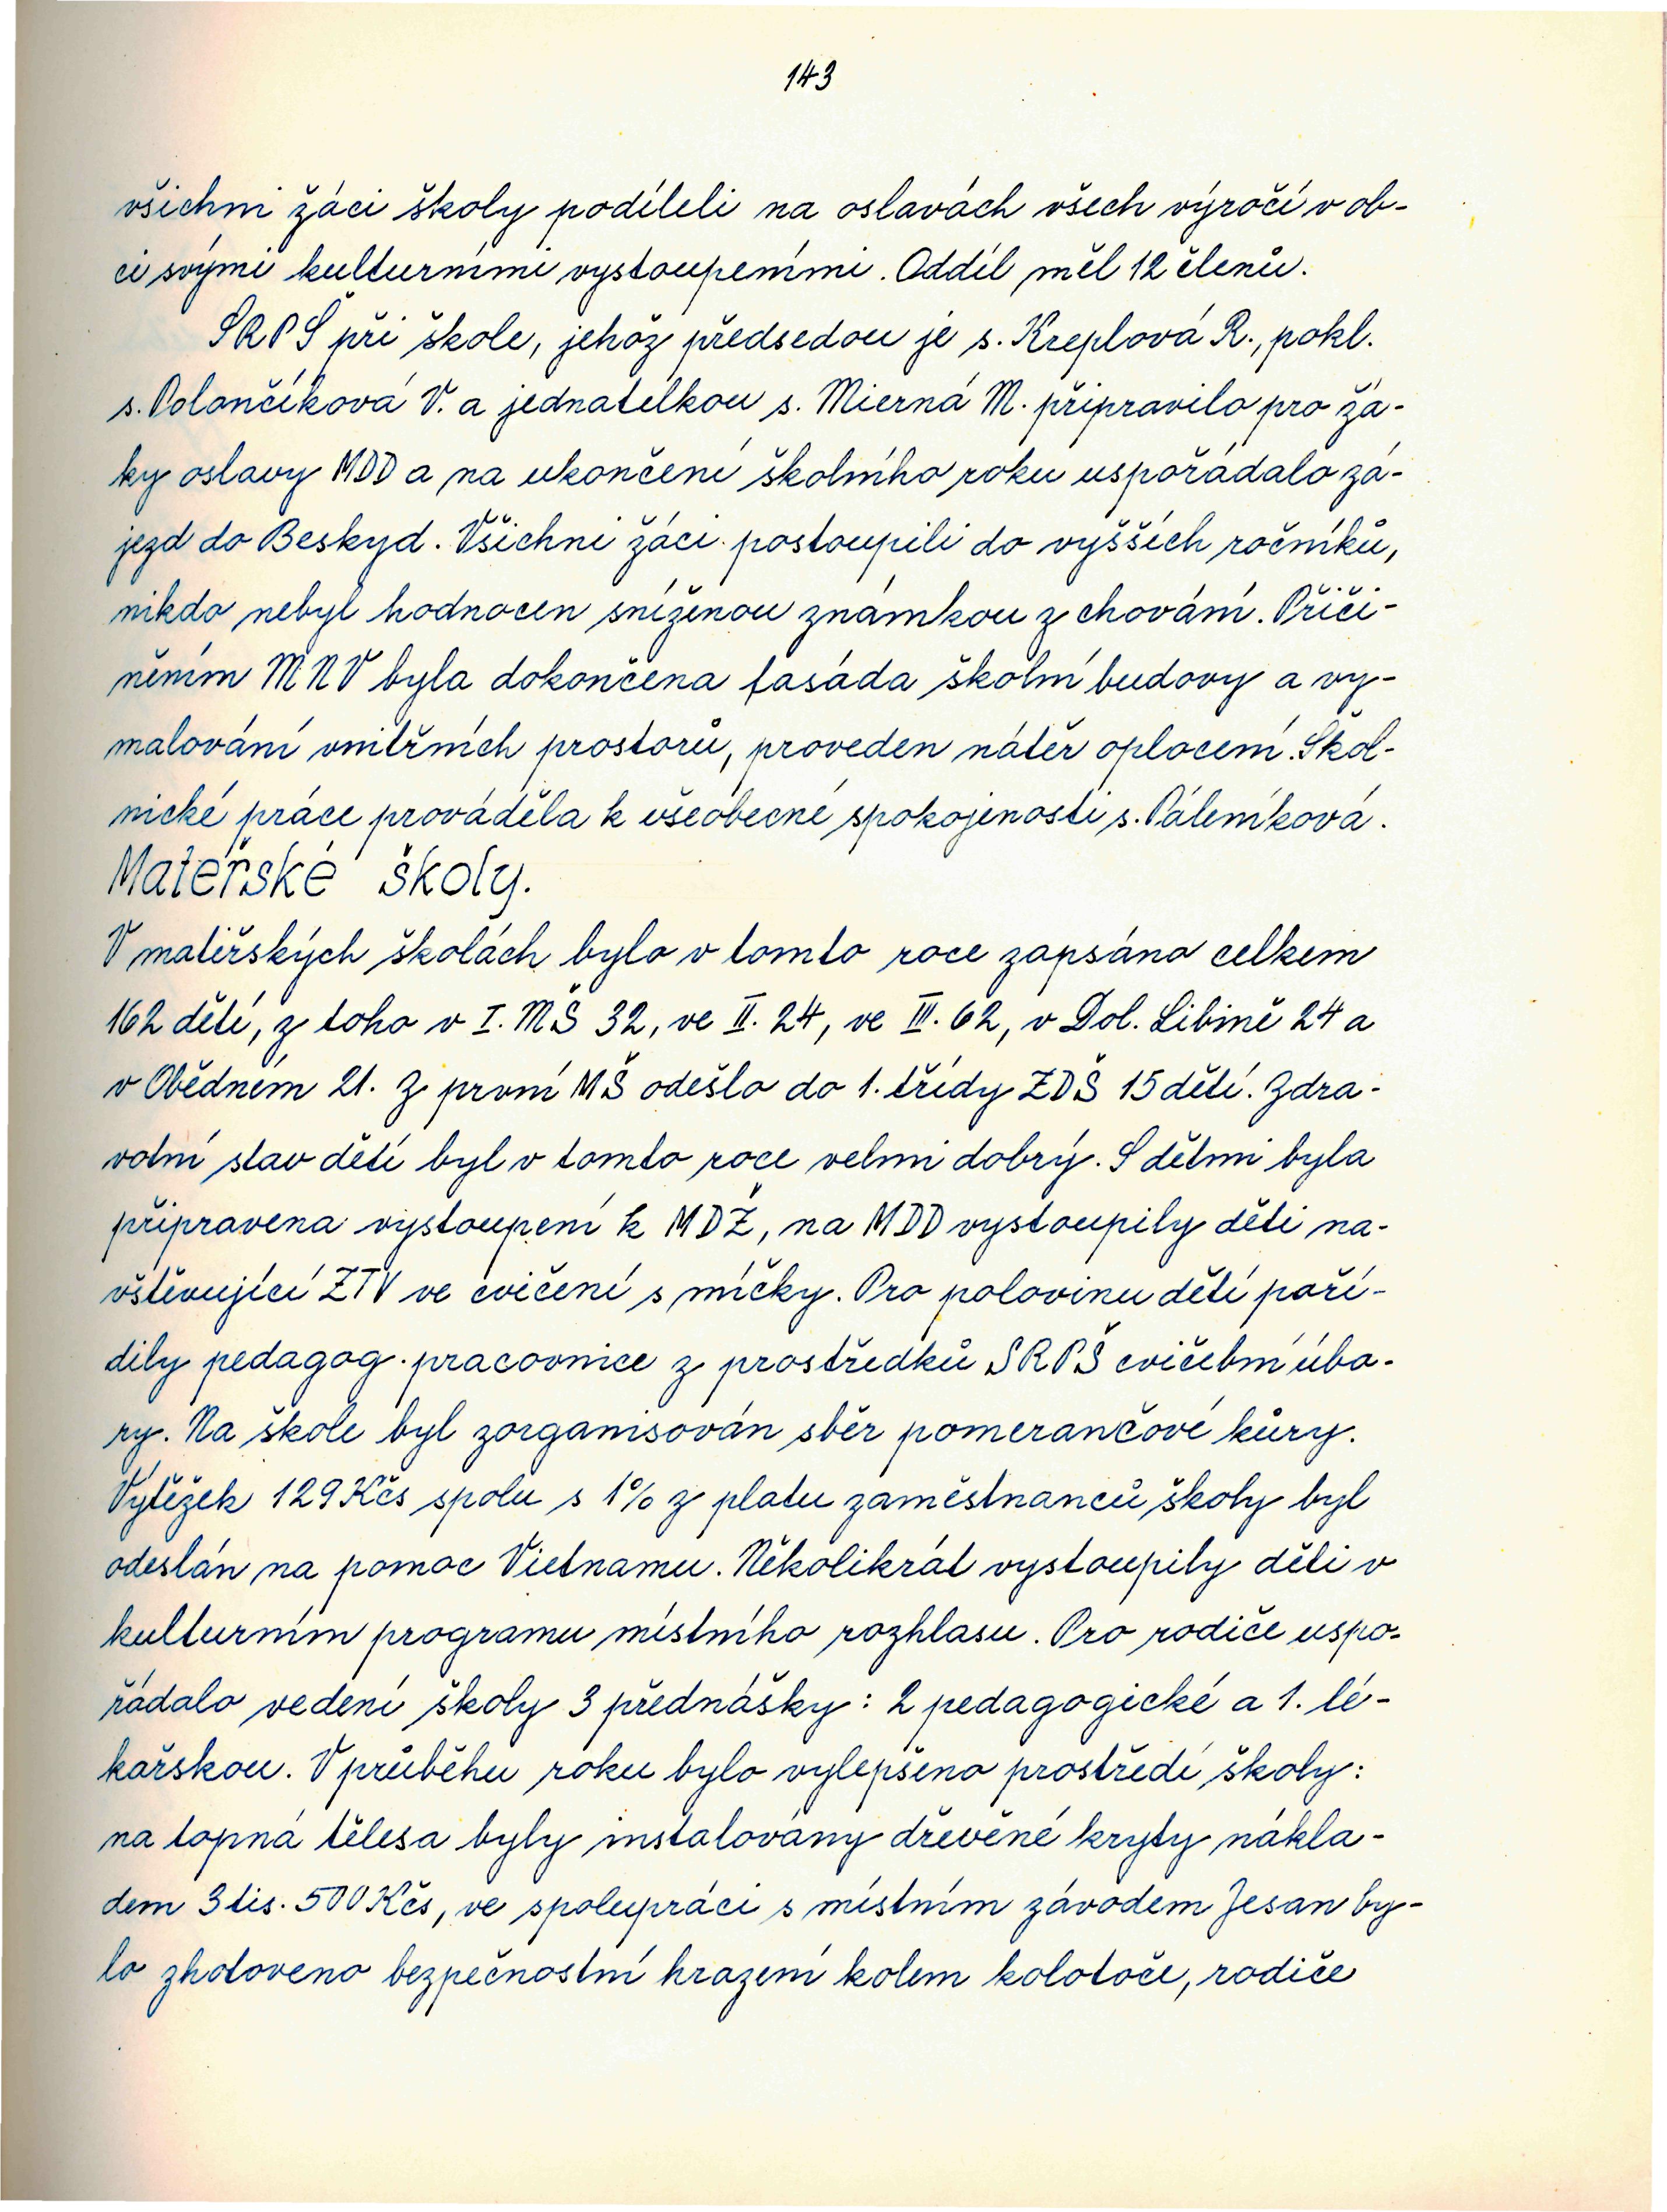 143
všichni žáci školy podíleli na oslavách všech výročí v ob-
ci svými kulturními vystoupeními. Oddíl měl 12 členů.
SRPŠ při škole, jehož předsedou je s. Kreplová R., pokl.
s. Polančíková V. a jednatelkou s. Mierná M. připravilo pro žá-
ky oslavy MDD a na ukončení školního roku uspořádalo zá-
jezd do Beskyd. Všichni žáci postoupili do vyšších ročníků,
nikdo nebyl hodnocen sníženou známkou z chování. Přiči-
něním MNV byla dokončena fasáda školní budovy a vy-
malování vnitřních prostorů, proveden nátěr oplocení. Škol-
nické práce prováděla k všeobecné spokojenosti s. Páleníková.
Mateřské školy.
V mateřských školách bylo v tomto roce zapsáno celkem
162 dětí, z toho v I. MŠ 32, ve II. 24, ve III. 62, v Dol. Libině 24 a
v Obědném 21. Z první MŠ odešlo do 1. třídy ZDŠ 15 dětí. Zdra-
votní stav dětí byl v tomto roce velmi dobrý. S dětmi byla
připravena vystoupení k MDŽ, na MDD vystoupily děti na-
vštěvující ZTV ve cvičení s míčky. Pro polovinu dětí poří-
dily pedagog. pracovnice z prostředků SRPŠ cvičební úbo-
ry. Na škole byl zorganisován sběr pomerančové kůry.
Výtěžek 129 Kčs spolu s 1% z platu zaměstnanců školy byl
odeslán na pomoc Vietnamu. Několikrát vystoupily děti v
kulturním programu místního rozhlasu. Pro rodiče uspo-
řádalo vedení školy 3 přednášky: 2 pedagogické a 1. lé-
kařskou. V průběhu roku bylo vylepšeno prostředí školy:
na topná tělesa byly instalovány dřevěné kryty nákla-
dem 3 tis. 500 Kčs, ve spolupráci s místním závodem Jesan by-
lo zhotoveno bezpečnostní hrazení kolem kolotoče, rodiče